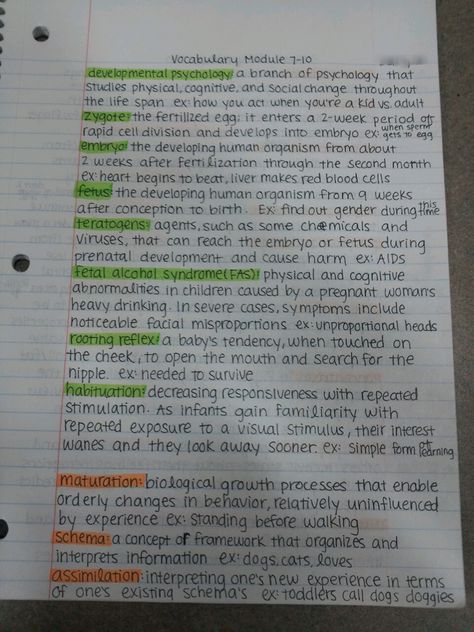 Vocabulary Module 7-10
developmental psychology: a branch of psychology that
studies physical, cognitive, and social change throughout
the life span ex: how you act when you're a kid vs. adult
zygote: the fertilized egg; it enters a 2-week period of
rapid cell division and develops into embryo ex: when sperm gets to egg
embryo: the developing human organism from about
2 weeks after fertilization through the second month
ex: heart begins to beat, liver makes red blood cells
fetus: the developing human organism from 9 weeks
after conception to birth. Ex: find out gender during this time
teratogens: agents, such as some chemicals and
viruses, that can reach the embryo or fetus during
prenatal development and cause harm ex: AIDS
fetal alcohol syndrome (FAS): physical and cognitive
abnormalities in children caused by a pregnant womans
heavy drinking. In severe cases, symptoms include
noticeable facial misproportions ex: unproportional heads
rooting reflex: a baby's tendency, when touched on
the cheek, to open the mouth and search for the
nipple. ex: needed to survive
habituation: decreasing responsiveness with repeated
stimulation. As infants gain familiarity with
repeated exposure to a visual stimulus, their interest
wanes and they look away sooner. ex: simple form of learning
maturation: biological growth processes that enable
orderly changes in behavior, relatively uninfluenced
by experience ex: standing before walking
schema: a concept of framework that organizes and
interprets information ex: dogs, cats, loves
assimilation: interpreting one's new experience in terms
of one's existing schema's ex: toddlers call dogs doggies